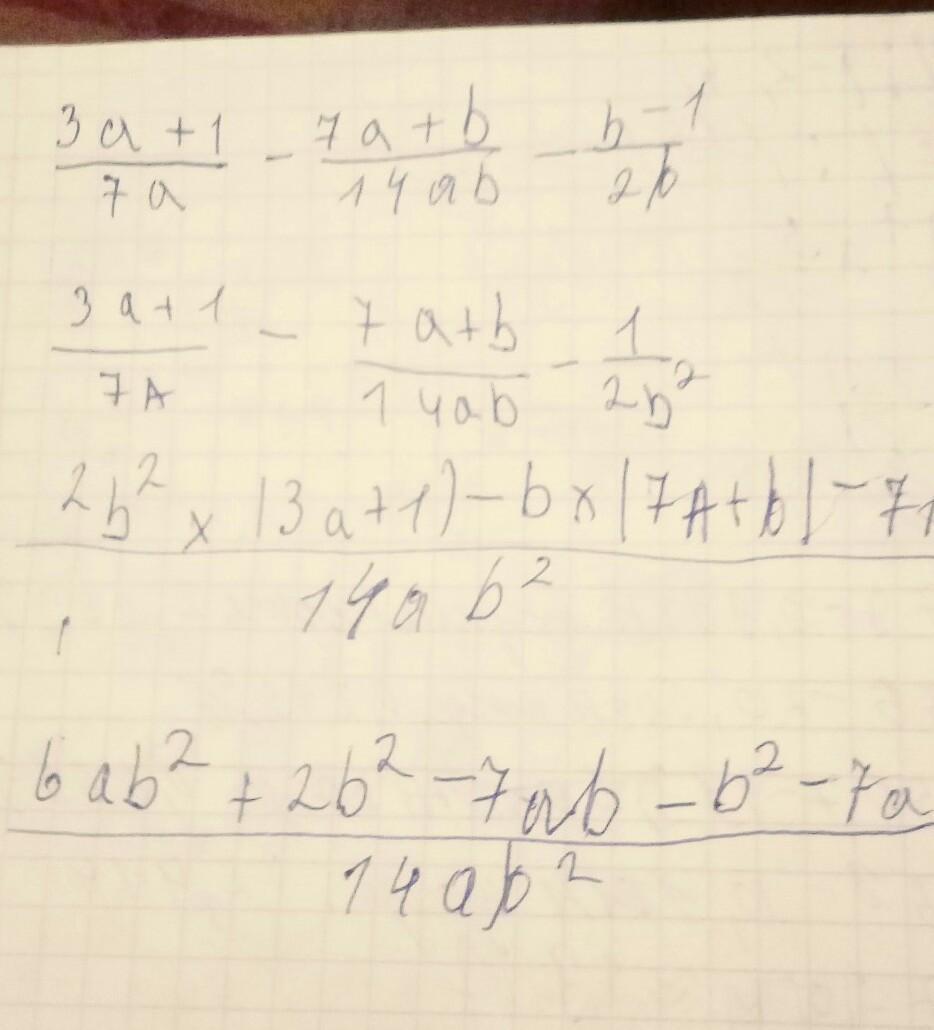 3a+1/7a - 7a+b/14ab - b-1/2b
3a+1/7A - 7a+b/14ab - 1/2b²
2b² x (3a+1) - b x (7A+b) - 7
14ab²
6ab² + 2b² - 7ab - b² - 7a
14ab²